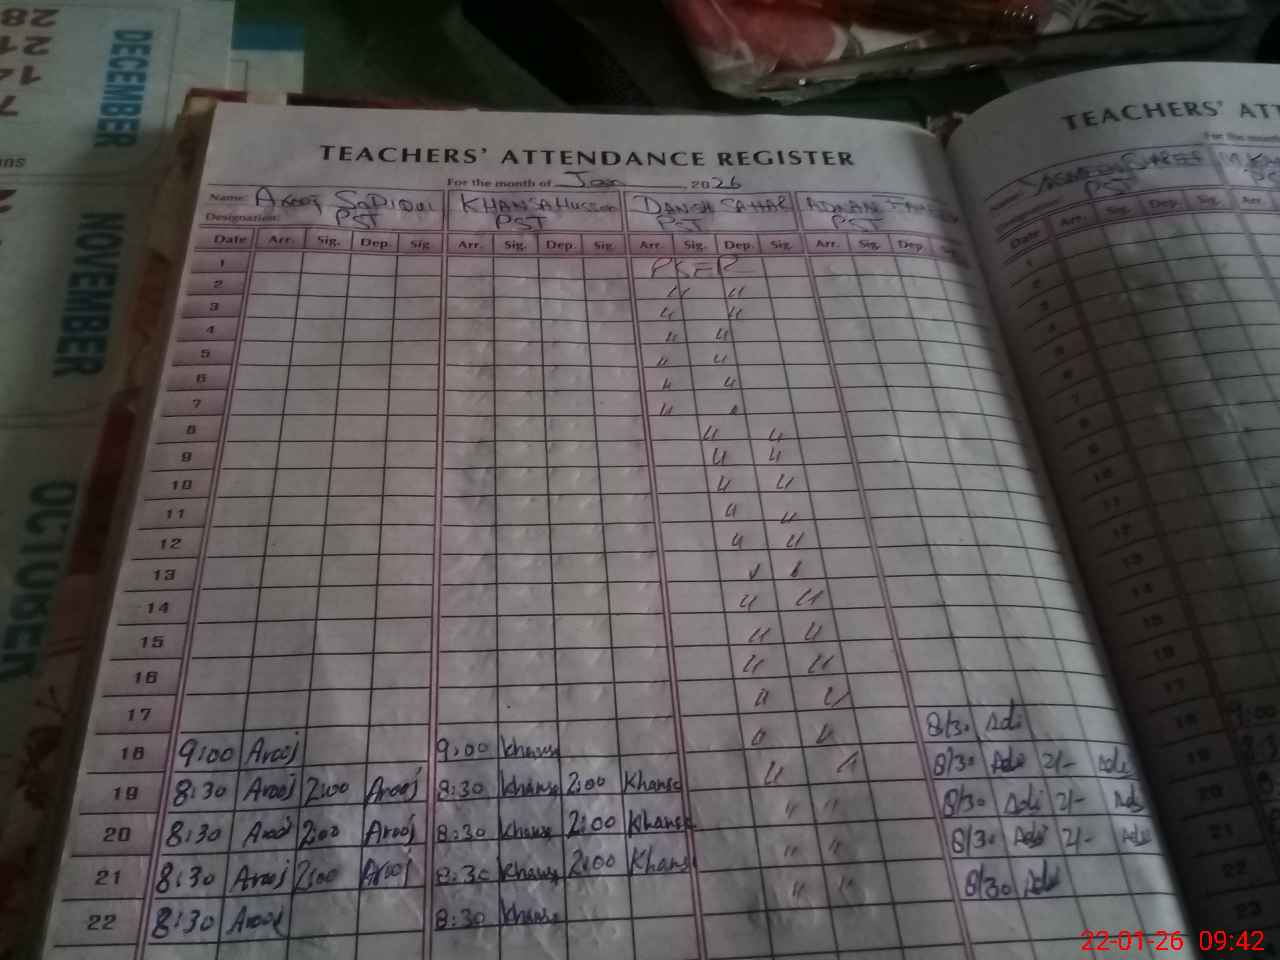 DECEMBER
28
21
14
7
NOVEMBER
OCTOBER
TEACHERS' ATTENDANCE REGISTER
For the month of Jan, 2026
Name: Arooj SaDiqui KHANSA Hussain DANISH SAHAR ADNAN
Designation: PST PST PST PST
Date Arr. Sig. Dep. Sig Arr. Sig. Dep. Sig. Arr. Sig. Dep. Sig. Arr. Sig. Dep. Sig.
1 PSER
2 〃 〃
3 〃 〃
4 〃 〃
5 〃 〃
6 〃 〃
7 〃 〃
8 〃 〃
9 〃 〃
10 〃 〃
11 〃 〃
12 〃 〃
13 〃 〃
14 〃 〃
15 〃 〃
16 〃 〃
17 〃 〃
18 9:00 Arooj 9:00 Khansa 〃 〃 8/30 Adi
19 8:30 Arooj 2:00 Arooj 8:30 Khansa 2:00 Khansa 〃 〃 8/30 Adi 2/- Adi
20 8:30 Arooj 2:00 Arooj 8:30 Khansa 2:00 Khansa 〃 〃 8/30 Adi 2/- Adi
21 8:30 Arooj 2:00 Arooj 8:30 Khansa 2:00 Khansa 〃 〃 8/30 Adi 2/- Adi
22 8:30 Arooj 8:30 Khansa 〃 〃 8/30 Adi
TEACHERS' ATT
For the month
Name:
Designation: PST
Date Arr. Sig. Dep. Sig. Arr.
1
2
3
4
5
6
7
8
9
10
11
12
13
14
15
16
17
18 9:00
19
20
21
22
23
22-01-26 09:42